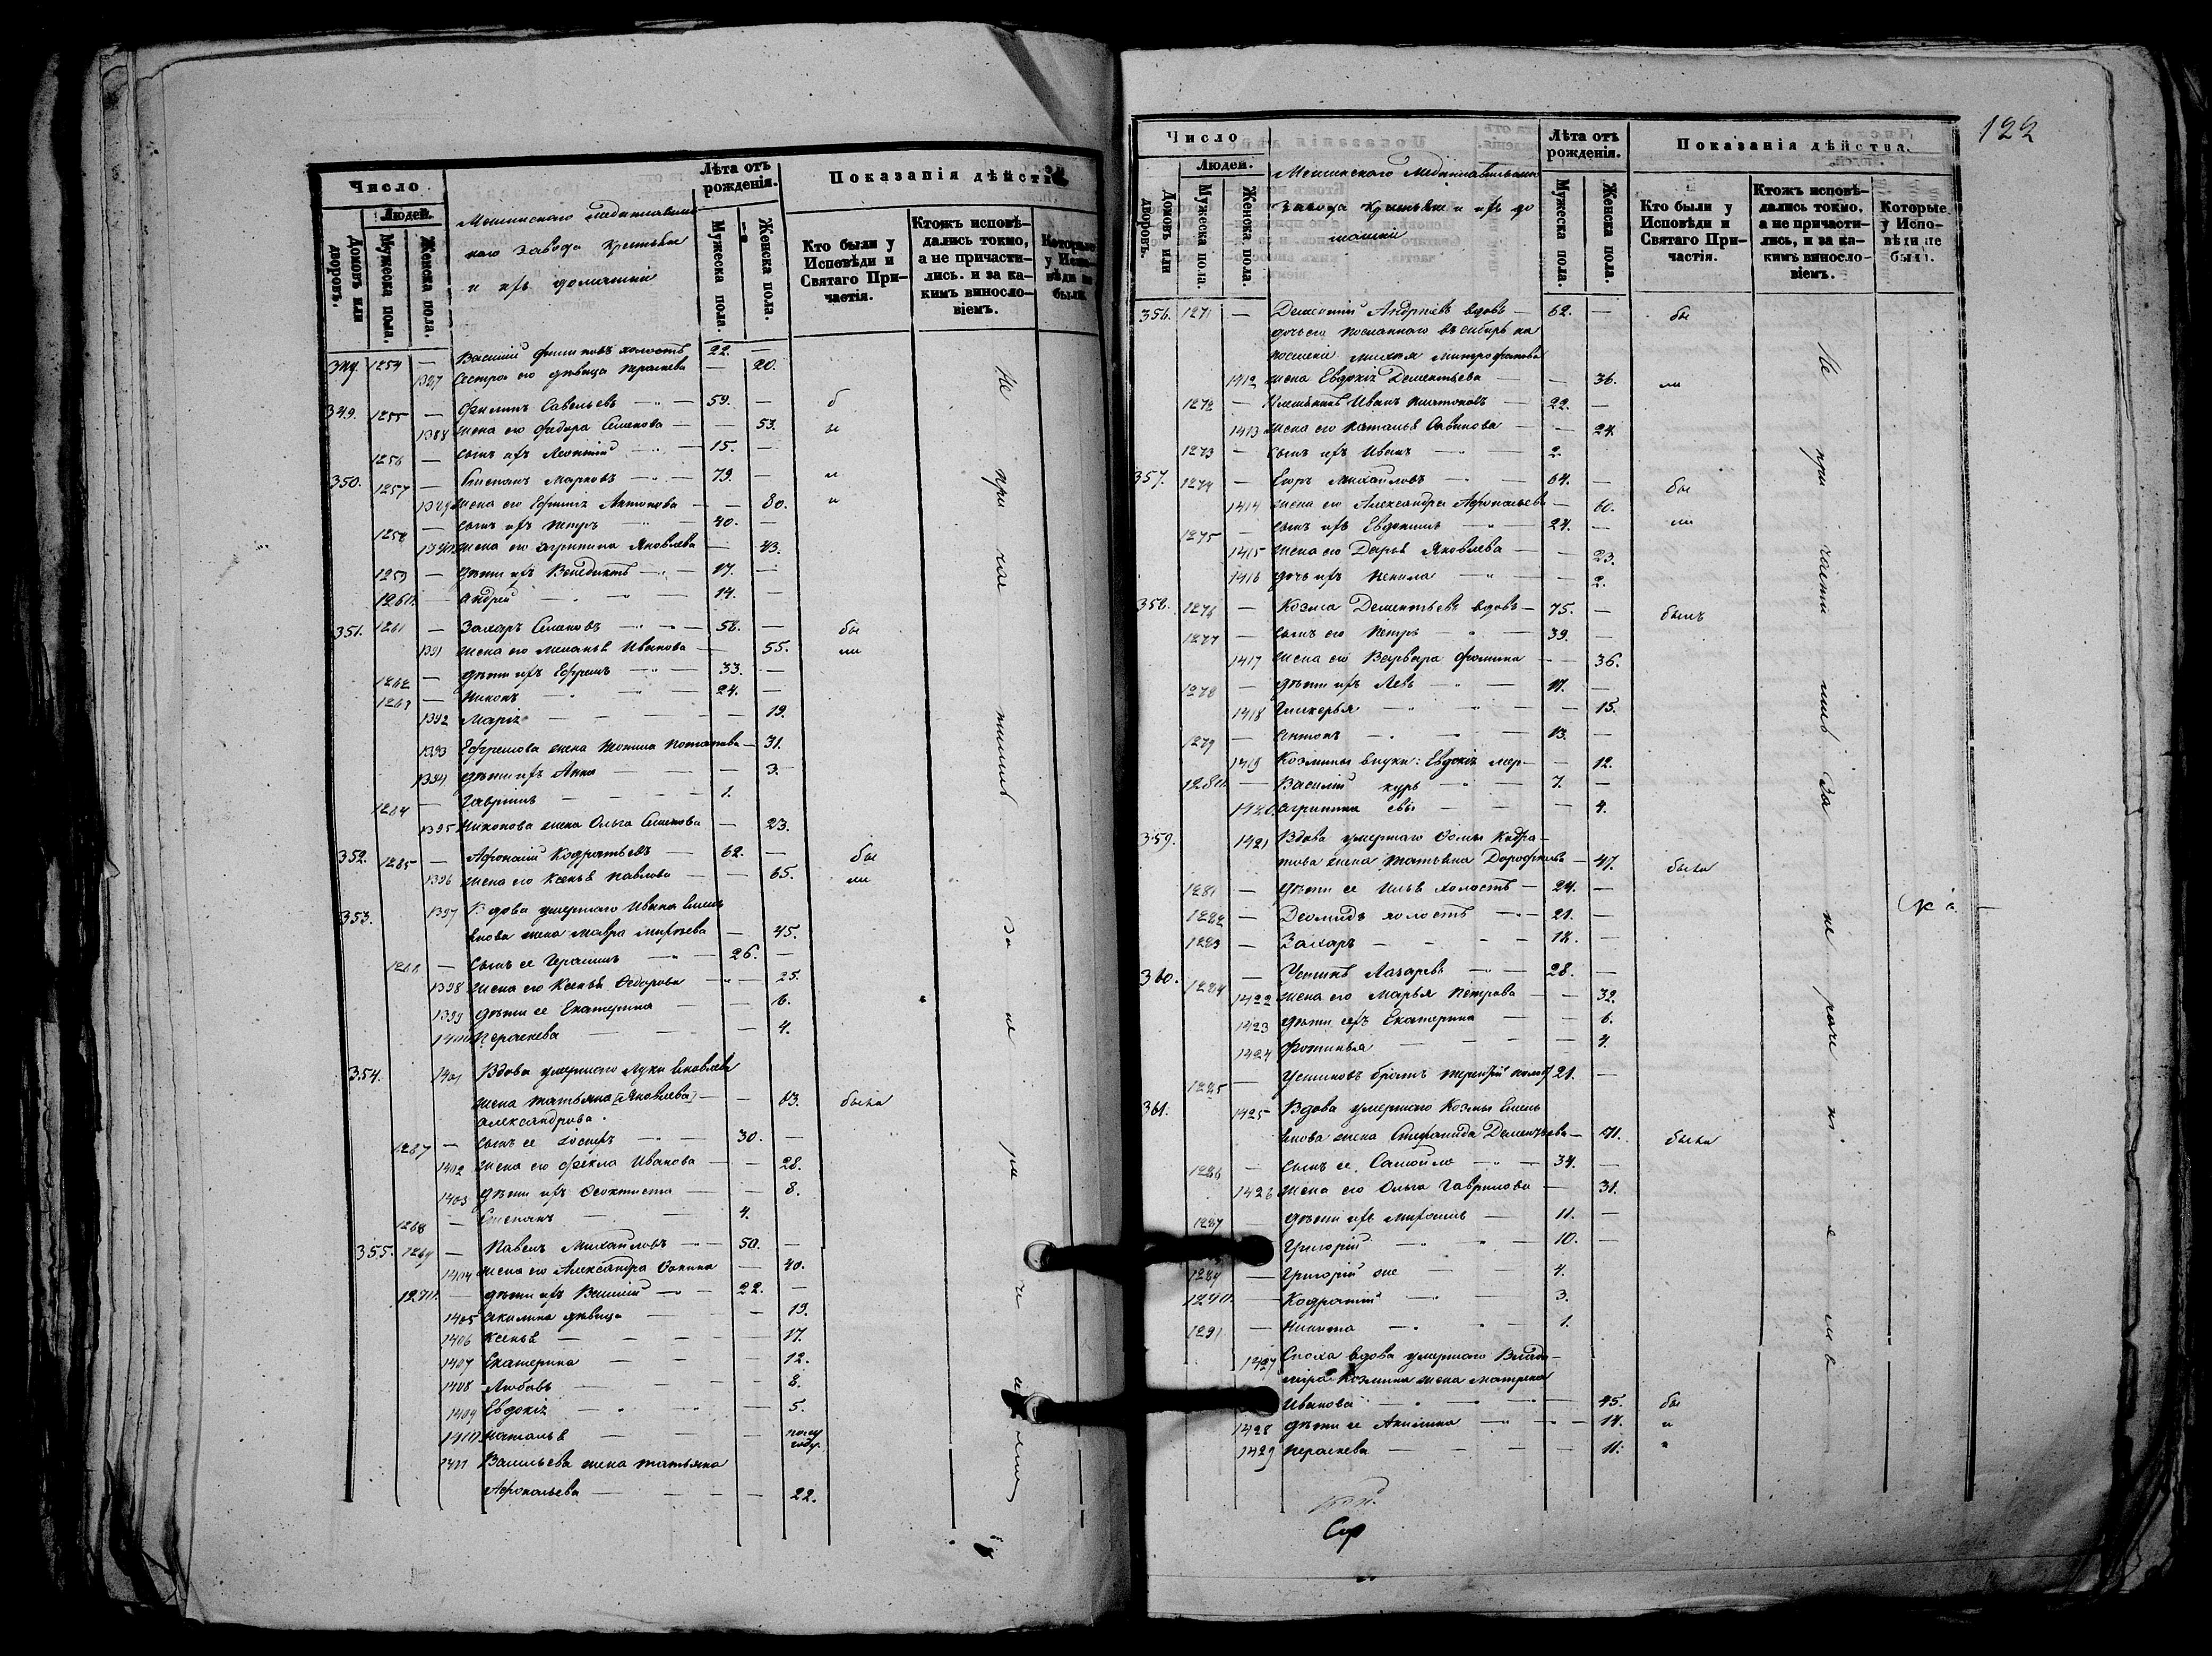 Число
Людей.
Домовъ или дворовъ.
Мужеска пола.
Женска пола.
завода крестьяне
и ихъ домашніе
Лѣта отъ рожденія.
Мужеска пола.
Женска пола.
Показанія дѣйств
Кто были у Исповѣди и Святаго Причастія.
Ктожъ исповѣдались токмо, а не причастились, и за какимъ винословіемъ.
Которые у Испо-вѣди не были.
1254 — Василій Филиповъ холостъ 22. —
1387 Сестра его дѣвица Параскева — 20.
349. 1255 — Филипъ Савельевъ — 59. —
1388 жена его Федора Семенова — — 53.
1256 — сынъ ихъ Леонтій — 15. —
350. 1257 — Степанъ Марковъ — 79. —
1389 жена его Ефимія Антонова — — 80.
1258 — сынъ ихъ Петръ — 40. —
жена его Агрипина Яковлева — 43.
1259 — дѣти ихъ Венедиктъ — 17. —
1260 — Андрей — 14. —
351. 1261 — Захаръ Семеновъ — 58. — бы
1391 жена его Меланья Иванова — 55. ли
1262 — дѣти ихъ Ефремъ — 33. —
1263 — Никонъ — 24. —
1392 Марія — — 19.
1393 Ефремова жена Фотина Потапова — 31.
1394 дѣти ихъ Анна — — 3.
1264 — Гавріилъ — 1.
1395 Никонова жена Ольга Семенова — 23.
352. 1265 — Афонасій Кодратьевъ — 62. — бы
1396 жена его Ксенья Павлова — — 65. ли
353. 1397 Вдова умершаго Ивана Емель
янова жена Мавра — 45.
1266 — сынъ ее Герасимъ — 26. —
1398 жена его Ксенья Федорова — 25.
1399 дѣти ее Екатерина — 6.
1400 Параскева — — 4.
354. 1401 Вдова умершаго Луки Яковлева
жена Татьяна [Яковлева] — — 83. была
Александрова.
1267 — сынъ ее Іосифъ — 30. —
1402 жена его Фекла Иванова — — 28.
1403 дѣти ихъ Феоктиста — — 8.
1268 — Степанъ — 4.
355. 1269 — Павелъ Михайловъ — 50. —
1404 жена его Александра Фокина — 40.
1270 — дѣти ихъ Василій — 22. —
1405 Акилина дѣвица — — 19.
1406 Ксенья — — 17.
1407 Екатерина — — 12.
1408 Любовь — — 8.
1409 Евдокія — — 5.
1410 Наталья — — полу
году.
1411 Васильева жена Татьяна
Афонасьева — — 22.
Не при час тились за не ра че ні
122
Число
Людей.
Домовъ или дворовъ.
Мужеска пола.
Женска пола.
завода крестьяне и ихъ до
машніе
Лѣта отъ рожденія.
Мужеска пола
Женска пола.
Показанія дѣйства.
Кто были у Исповѣди и Святаго Причастія.
Ктожъ исповѣдались токмо, а не причастились, и за какимъ винословіемъ.
Которые у Исповѣди не были.
356. 1271 — Дементій Андреевъ вдовъ — 62. — бы
дочь его посланнаго въ сибирь на
поселеніе Митрофанова
1412 жена Евдокія Дементьева — — 36. ли
1272 — Племянникъ Иванъ Платоновъ — 22. —
1413 жена его Наталья Савинова — — 24.
1273 — сынъ ихъ Иванъ — 2.
357. 1274 — Егоръ Михайловъ — 64. — бы
1414 жена его Александра Афонасьева — 60.
1275 — сынъ ихъ Евдокимъ — 24. — ли
1415 жена его Дарья Яковлева — — 23.
1416 дочь ихъ — — 2.
358. 1276 — Козма Дементьевъ вдовъ — 75. — былъ
1277 — сынъ его Петръ — 39. —
1417 жена его Варвара Фомина — — 36.
1278 — дѣти ихъ Левъ — 17. —
1418 Гликерья — — 15.
1279 — Антонъ — 13. —
1419 Козмины внуки: Евдокія — 12.
1280 — Василій — 7. —
1420 Агрипина — — 4.
359. 1421 Вдова умершаго Фомы Кодра-
това жена Татьяна Дорофеева — 47. была
1281 — дѣти ее Илья холостъ — 24. —
1282 — Деомидъ холостъ — 21. —
1283 — Захаръ — 18. —
360. 1284 — Устинъ Лазаревъ — 28. —
1422 жена его Марья Петрова — — 32.
1423 дѣти ихъ Екатерина — — 6.
1424 Фотинья — — 4.
1285 — Устиновъ братъ Терентій холост 21. —
361. 1425 Вдова умершаго Козмы Емель
янова жена Степанида Дементьева — 71. была
1286 — сынъ ее Самойло — 34. —
1426 жена его Ольга Гаврилова — 31.
1287 — дѣти ихъ — 11. —
Григорій — 10. —
1289 — Григорій же — 4.
1290 — Кодратій — 3.
1291 — Никита — 1.
1427 Сноха вдова умершаго Влади-
міра Козмина жена Матрена
Иванова — — 45. бы
1428 дѣти ее Акилина — — 14.
1429 Параскева — — 11.
Не при части лись за не раче ні е мъ